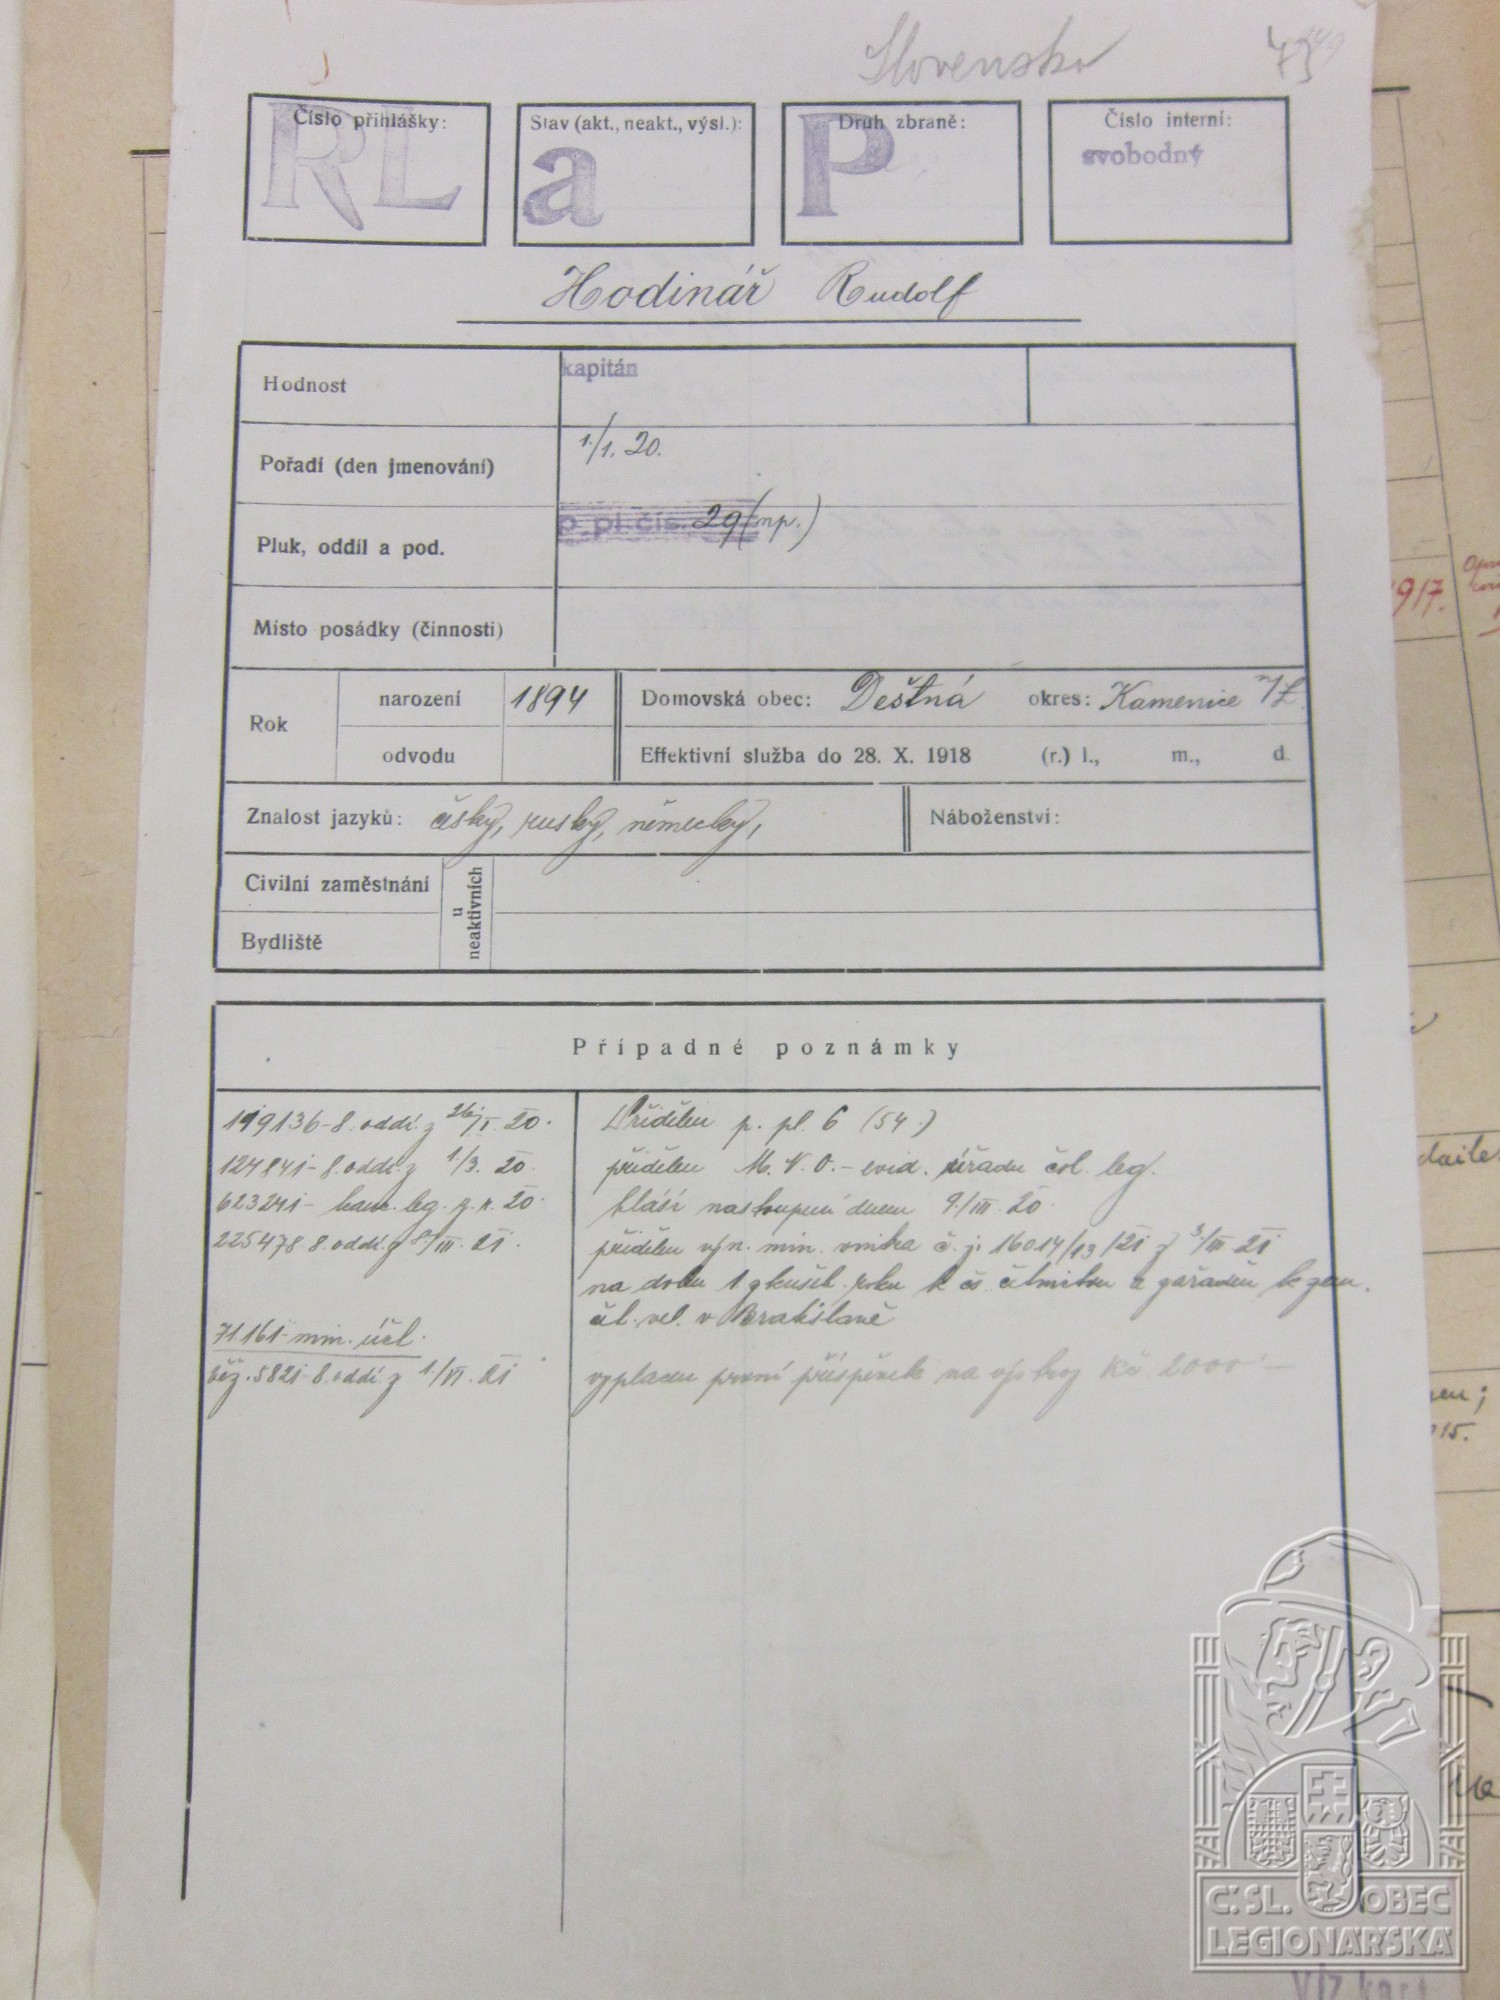 Slovensko
Číslo přihlášky: Stav (akt., neakt., výsl.): Druh zbraně: Číslo interní:
RL a P svobodný
Hodinář Rudolf
Hodnost kapitán
Pořadí (den jmenování) 1./1. 20.
Pluk, oddíl a pod. p. pl. čís. 29 (np.)
Místo posádky (činnosti)
Rok narození 1894 Domovská obec: Deštná okres: Kamenice n/L.
odvodu Effektivní služba do 28. X. 1918 (r.) l., m., d.
Znalost jazyků: český, ruský, německý, Náboženství:
Civilní zaměstnání
u neaktivních
Bydliště
Případné poznámky
119136-8. odděl. z 26/I. 20. Přidělen p. pl. 6 (54.)
124841-8. odděl. z 1./3. 20. přidělen M. N. O. - evid. úřadu čsl. leg.
623241- kanc. leg. z. r. 20. hlásí nastoupení dnem 9./III. 20.
225478 8. odděl. z 8./III. 21. přidělen výn. min. vnitra č. j. 16014/13/21 z 3./III 21
na dobu 1 zkušeb. roku k čs. četnictvu a zařaděn k zem.
čet. vel. v Bratislavě
71.161- min. účt.
běž. 5821-8. odděl. z 1./VI. 21 vyplacen první příspěvek na výstroj Kč 2000.-
1917.
015.
Č.SL. OBEC
LEGIONÁŘSKÁ